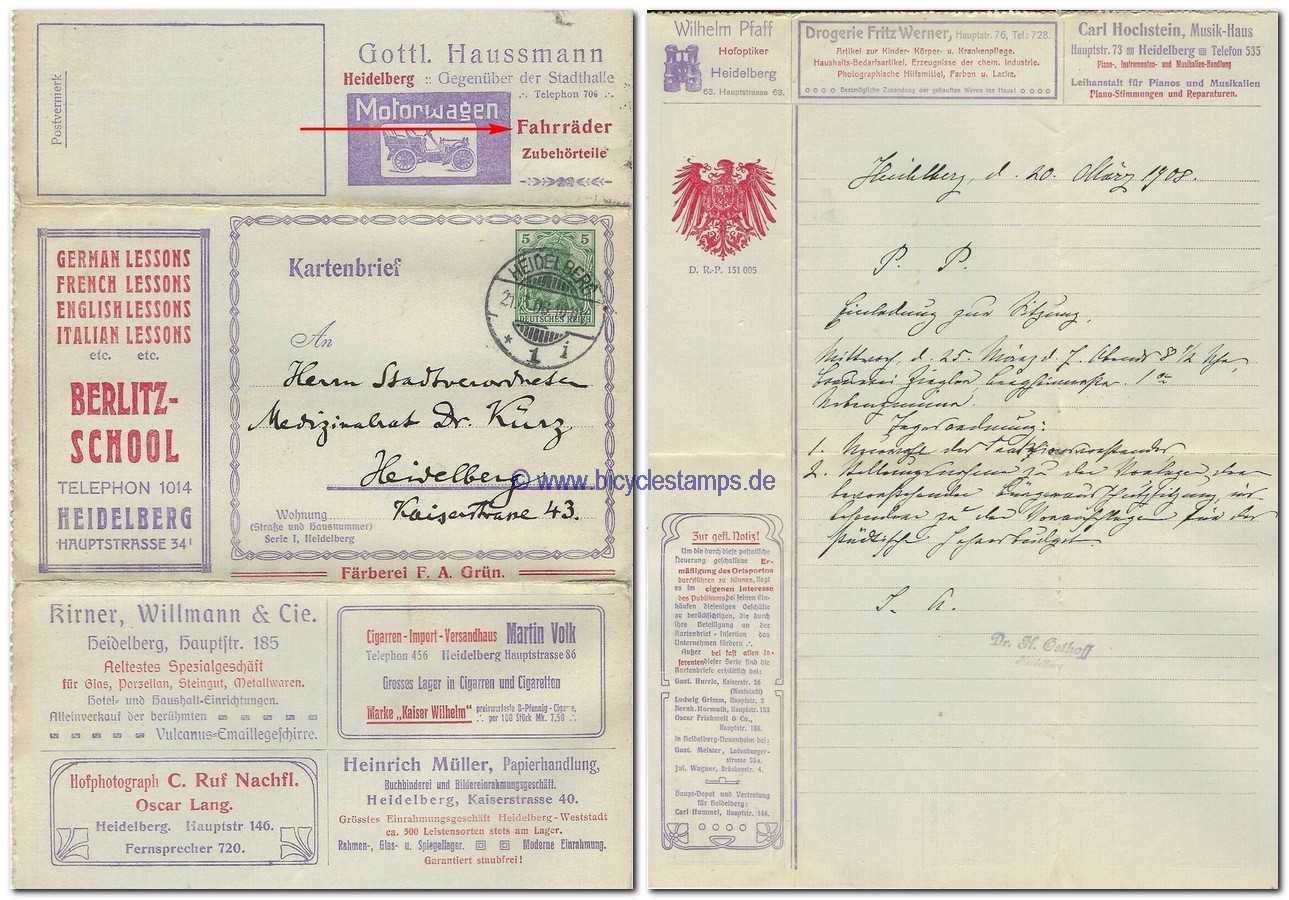 Postvermerk
Gottl. Haussmann
Heidelberg :: Gegenüber der Stadthalle
.·. Telephon 706 .·.
Motorwagen
Fahrräder
Zubehörteile
GERMAN LESSONS
FRENCH LESSONS
ENGLISH LESSONS
ITALIAN LESSONS
etc. etc.
BERLITZ-
SCHOOL
TELEPHON 1014
HEIDELBERG
HAUPTSTRASSE 34
Kartenbrief
5 5
DEUTSCHES REICH
HEIDELBERG
1 i
An
Herrn Stadtverordneten
Medizinalrat Dr. Kurz
Heidelberg
Kaiserstrasse 43.
Wohnung
(Straße und Hausnummer)
Serie I, Heidelberg
Färberei F. A. Grün.
Kirner, Willmann & Cie.
Heidelberg, Hauptstr. 185
Aeltestes Spezialgeschäft
für Glas, Porzellan, Steingut, Metallwaren.
Hotel- und Haushalt-Einrichtungen.
Alleinverkauf der berühmten
Vulcanus-Emaillegeschirre.
Cigarren-Import-Versandhaus Martin Volk
Telephon 456 Heidelberg Hauptstrasse 86
Grosses Lager in Cigarren und Cigaretten
Marke „Kaiser Wilhelm" preiswerteste 8-Pfennig-Cigarre,
.·. per 100 Stück Mk. 7,50 .·.
Hofphotograph C. Ruf Nachfl.
Oscar Lang.
Heidelberg. Hauptstr 146.
Fernsprecher 720.
Heinrich Müller, Papierhandlung,
Buchbinderei und Bildereinrahmungsgeschäft.
Heidelberg, Kaiserstrasse 40.
Grösstes Einrahmungsgeschäft Heidelberg-Weststadt
ca. 500 Leistensorten stets am Lager.
Rahmen-, Glas- u. Spiegellager. Moderne Einrahmung.
Garantiert staubfrei!
© www.bicyclestamps.de
Wilhelm Pfaff
Hofoptiker
Heidelberg
63. Hauptstrasse 63.
Drogerie Fritz Werner, Hauptstr. 76, Tel: 728.
Artikel zur Kinder- Körper- u. Krankenpflege.
Haushalts-Bedarfsartikel. Erzeugnisse der chem. Industrie.
Photographische Hilfsmittel, Farben u. Lacke.
Bestmögliche Zusendung der gekauften Waren ins Haus!
Carl Hochstein, Musik-Haus
Hauptstr. 73 Heidelberg Telefon 535
Piano-, Instrumenten- und Musikalien-Handlung
Leihanstalt für Pianos und Musikalien
Piano-Stimmungen und Reparaturen.
D. R.-P. 151 005
Heidelberg, d. 20. März 1908.
P. P.
Einladung zur Sitzung,
Mittwoch, d. 25. März d. J. Abends 8 1/2 Uhr,
Brauerei Ziegler
Nebenzimmer.
Tagesordnung:
1. Neuwahl des Fraktionsvorstandes
2. Stellungnahme zu den Vorlagen der
bevorstehenden Bürgerausschußsitzung, ins-
besondere zu den Voranschlägen für das
städtische
J. A.
Dr. H. Osthoff
Heidelberg
Zur gefl. Notiz!
Um die durch diese postalische
Neuerung geschaffene Er-
mäßigung des Ortsportos
durchführen zu können, liegt
es im eigenen Interesse
des Publikums bei seinen Ein-
käufen diejenigen Geschäfte
zu berücksichtigen, die durch
ihre Beteiligung an der
Kartenbrief-Insertion das
Unternehmen fördern .·.
Außer bei fast allen In-
serenten dieser Serie sind die
Kartenbriefe erhältlich bei:
Gust. Hurrle, Kaiserstr. 56
(Weststadt)
Ludwig Grimm, Hauptstr. 3
Bernh. Hormuth, Hauptstr. 153
Oscar Frischwelt & Co.,
Hauptstr. 186.
in Heidelberg-Neuenheim bei:
Gust. Meister, Ladenburger-
strasse 25a.
Jul. Wagner, Brückenstr. 4.
Haupt-Depot und Vertretung
für Heidelberg:
Carl Hummel, Hauptstr. 146.